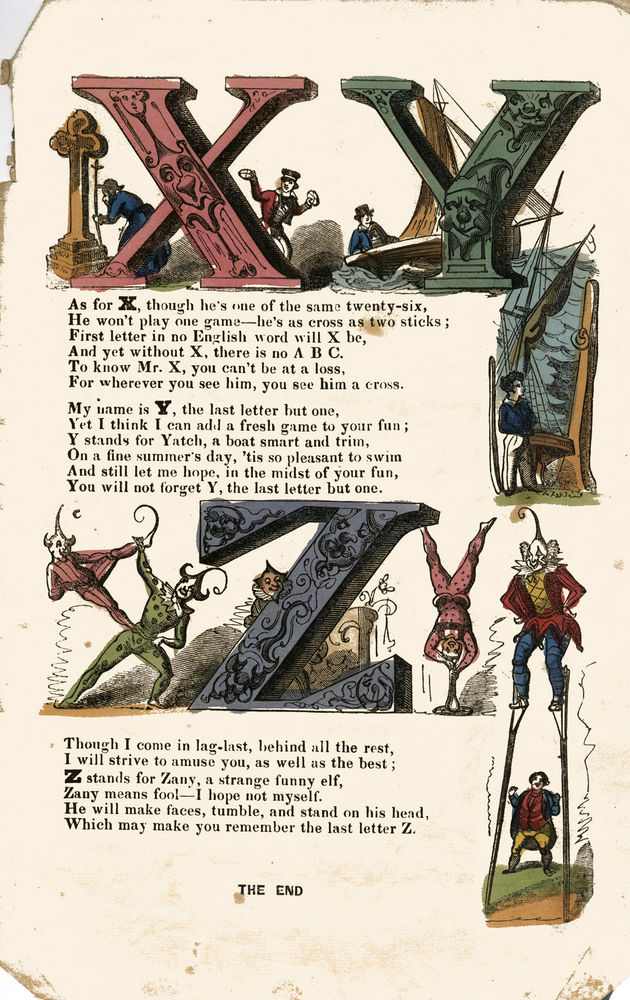 X Y
As for X, though he's one of the same twenty-six,
He won't play one game—he's as cross as two sticks;
First letter in no English word will X be,
And yet without X, there is no A B C.
To know Mr. X, you can't be at a loss,
For wherever you see him, you see him a cross.
My name is Y, the last letter but one,
Yet I think I can add a fresh game to your fun;
Y stands for Yatch, a boat smart and trim,
On a fine summer's day, 'tis so pleasant to swim
And still let me hope, in the midst of your fun,
You will not forget Y, the last letter but one.
Z
Though I come in lag-last, behind all the rest,
I will strive to amuse you, as well as the best;
Z stands for Zany, a strange funny elf,
Zany means fool—I hope not myself.
He will make faces, tumble, and stand on his head,
Which may make you remember the last letter Z.
THE END